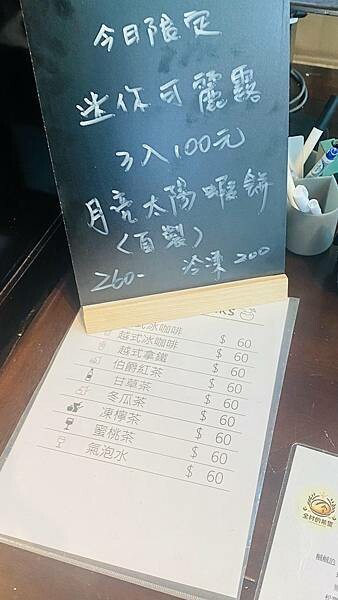 今日限定
迷你可麗露
3入100元
月亮太陽蝦餅
(自製)
260- 冷凍200
KS
式冰咖啡 $ 60
越式冰咖啡 $ 60
越式拿鐵 $ 60
伯爵紅茶 $ 60
甘草茶 $ 60
冬瓜茶 $ 60
凍檸茶 $ 60
蜜桃茶 $ 60
氣泡水 $ 60